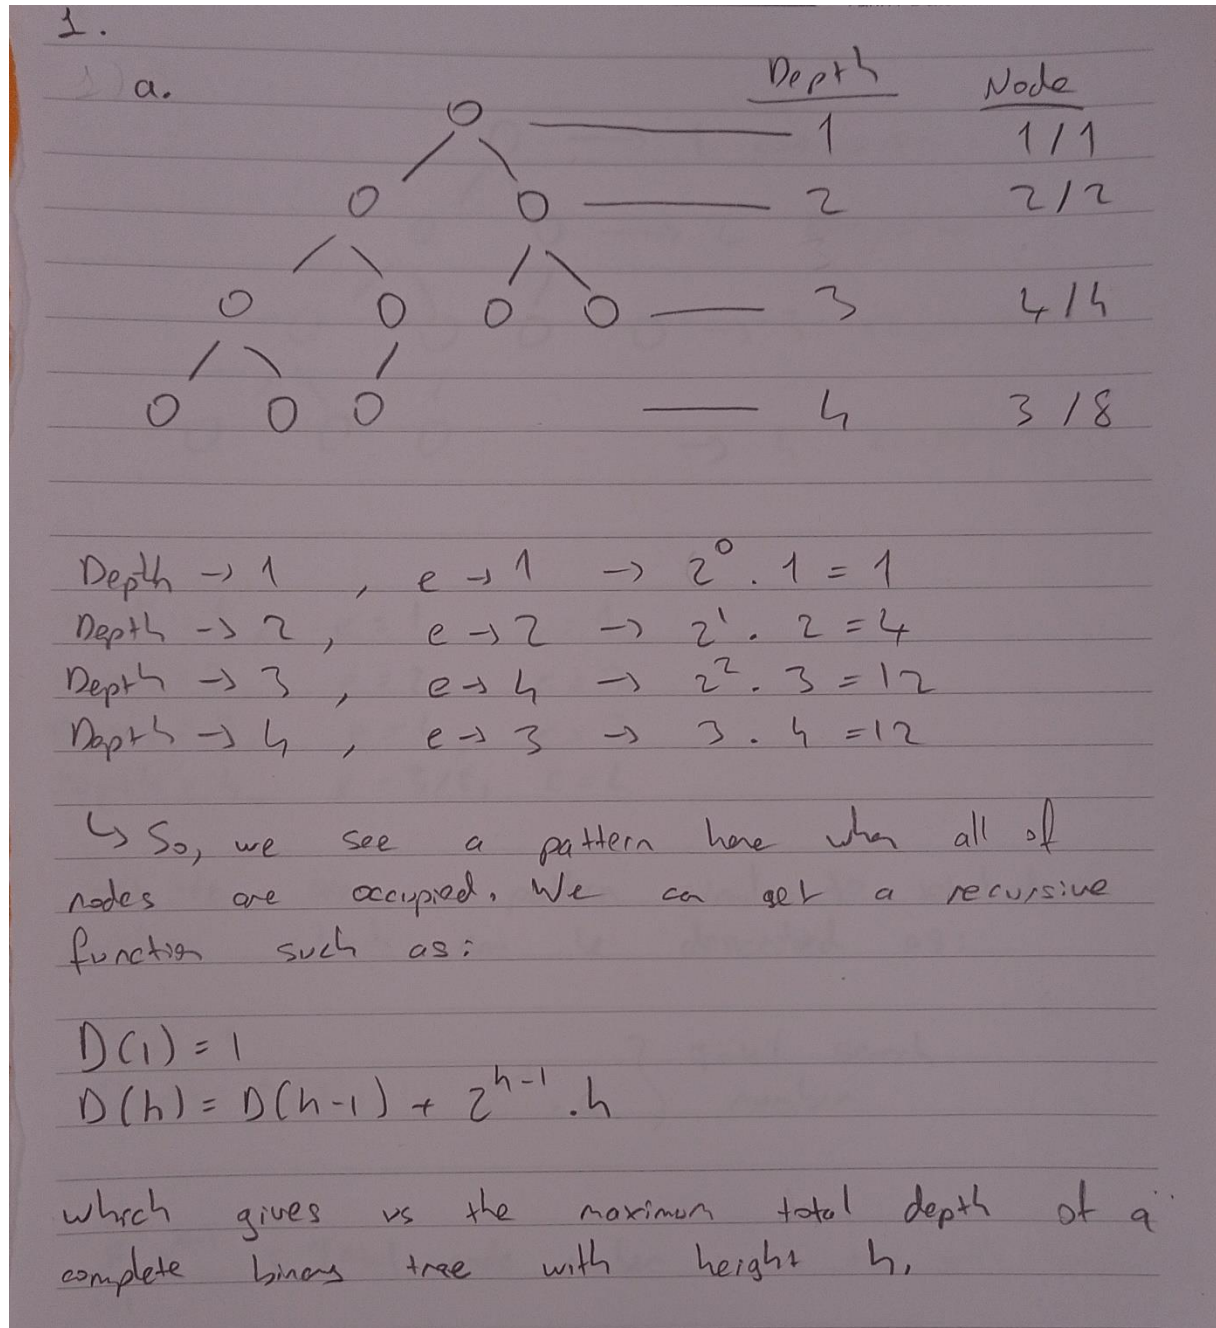 1.
a.
Depth Node
1 1/1
2 2/2
3 4/4
4 3/8
Depth → 1 , e → 1 → 2⁰ . 1 = 1
Depth → 2 , e → 2 → 2¹ . 2 = 4
Depth → 3 , e → 4 → 2² . 3 = 12
Depth → 4 , e → 3 → 3 . 4 = 12
↳ So, we see a pattern here when all of
nodes are occupied. We can get a recursive
function such as:
D(1) = 1
D(h) = D(h-1) + 2ʰ⁻¹ . h
which gives us the maximum total depth of a
complete binary tree with height h.